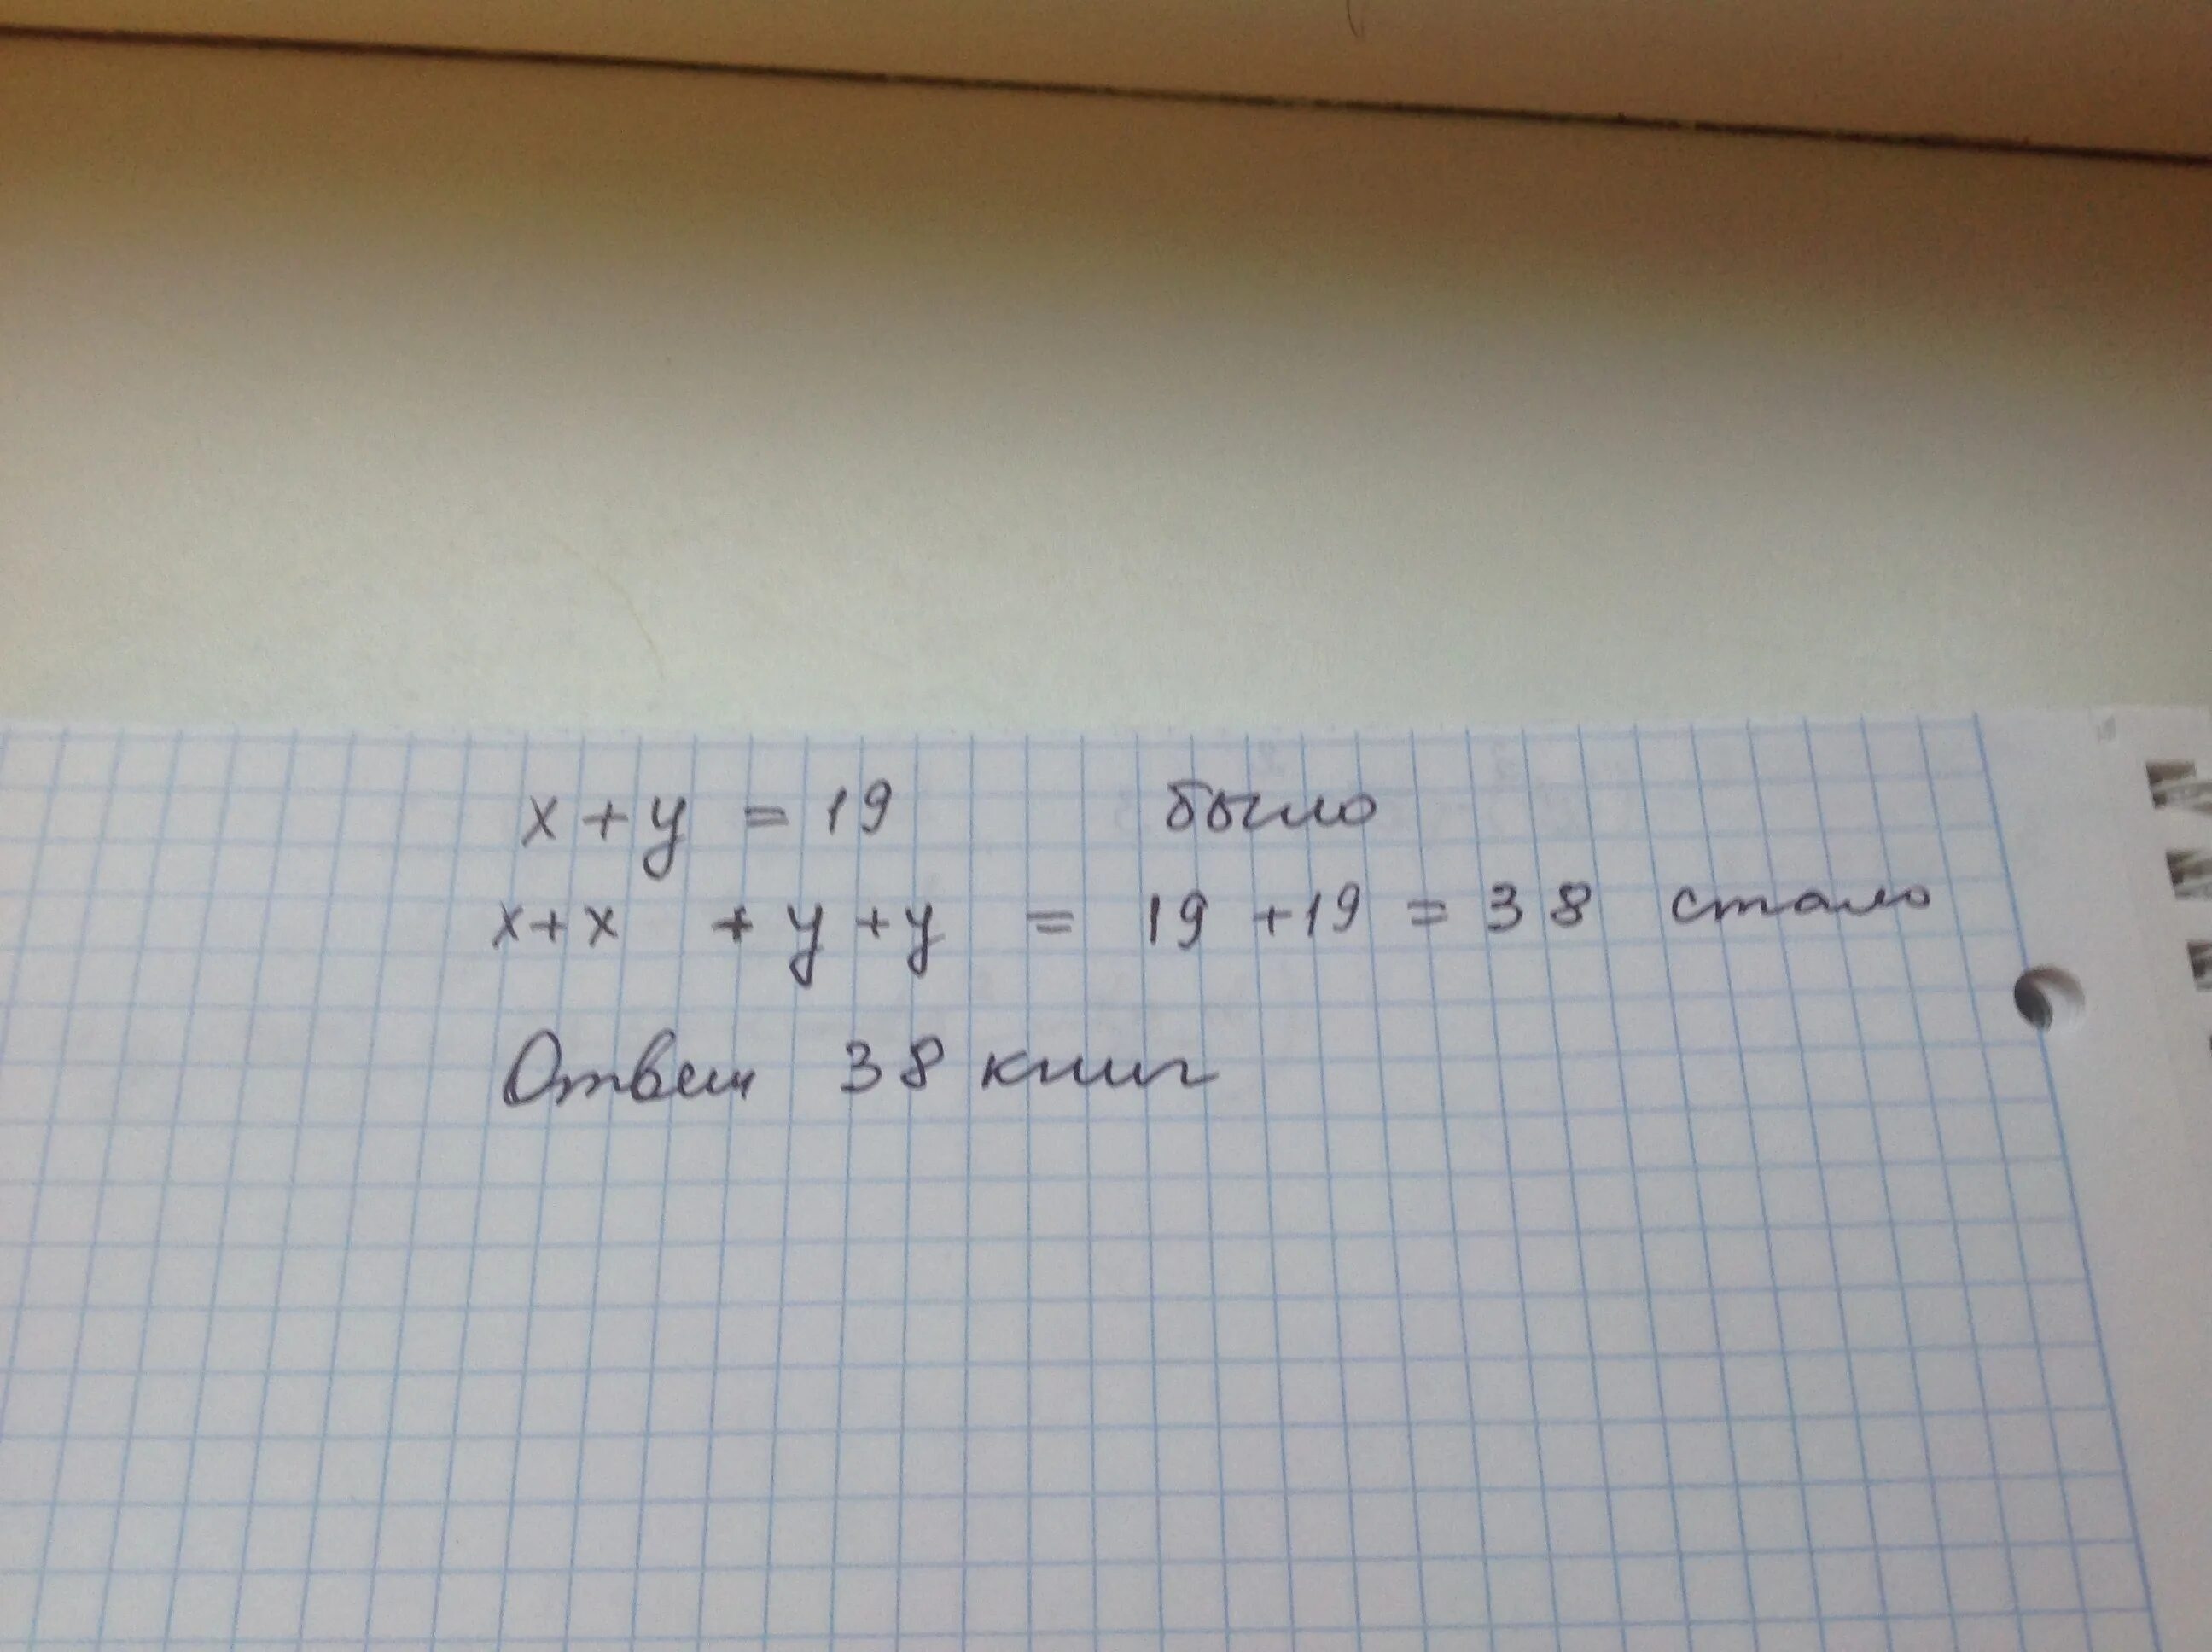 x + y = 19 было
x + x + y + y = 19 + 19 = 38 стало
Ответ 38 книг